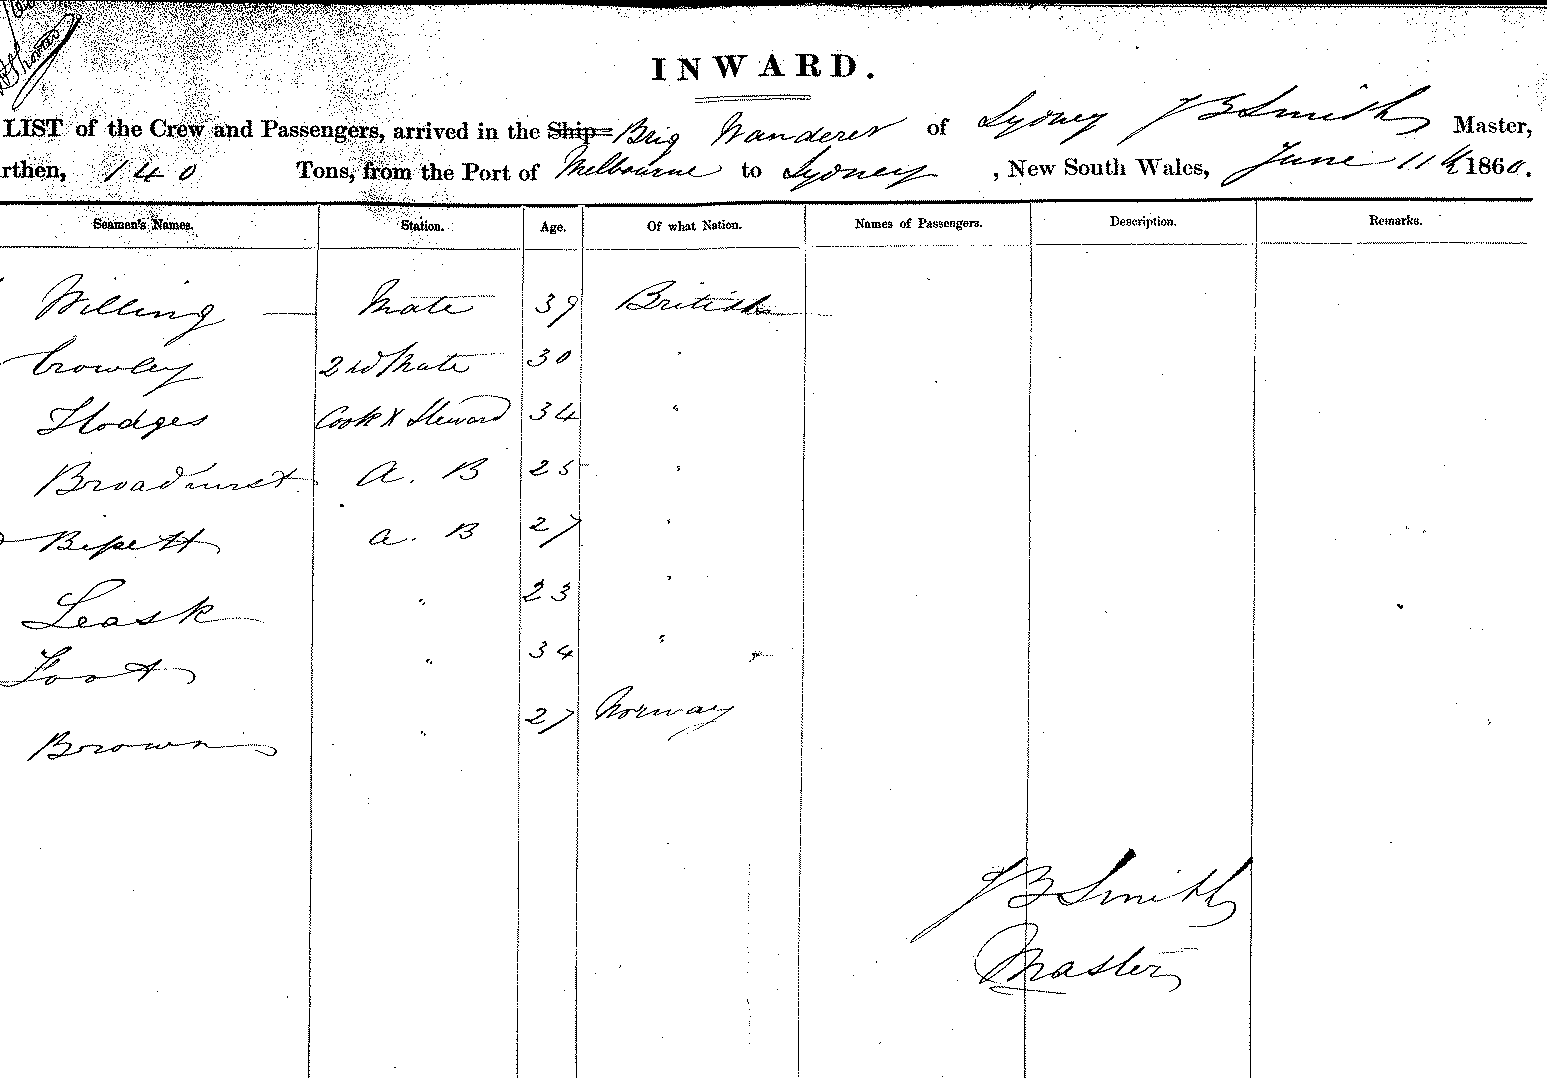 Thomas
INWARD.
LIST of the Crew and Passengers, arrived in the Ship Brig Wanderer of Sydney J B Smith Master,
rthen, 140 Tons, from the Port of Melbourne to Sydney, New South Wales, June 11th 1860.
Seamen's Names. Station. Age. Of what Nation. Names of Passengers. Description. Remarks.
Willing Mate 39 British
Crowley 2nd Mate 30 "
Hodges Cook & Steward 34 "
Broadhurst A. B 25 "
a. B 27 "
Leask " 23 "
Foot " 34 "
Brown " 27 Norway
J B Smith
Master